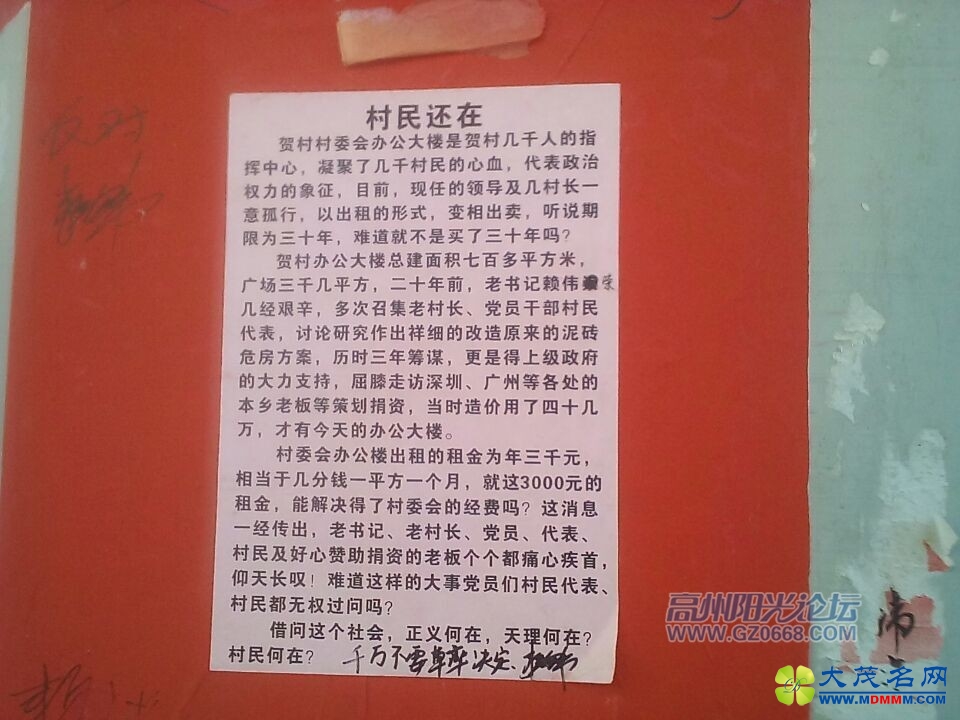 村民还在
贺村村委会办公大楼是贺村几千人的指
挥中心，凝聚了几千村民的心血，代表政治
权力的象征，目前，现任的领导及几村长一
意孤行，以出租的形式，变相出卖，听说期
限为三十年，难道就不是买了三十年吗？
贺村办公大楼总建面积七百多平方米，
广场三千几平方，二十年前，老书记赖伟荣
几经艰辛，多次召集老村长、党员干部村民
代表，讨论研究作出祥细的改造原来的泥砖
危房方案，历时三年筹谋，更是得上级政府
的大力支持，屈膝走访深圳、广州等各处的
本乡老板等策划捐资，当时造价用了四十几
万，才有今天的办公大楼。
村委会办公楼出租的租金为年三千元，
相当于几分钱一平方一个月，就这3000元的
租金，能解决得了村委会的经费吗？这消息
一经传出，老书记、老村长、党员、代表、
村民及好心赞助捐资的老板个个都痛心疾首，
仰天长叹！难道这样的大事党员们村民代表、
村民都无权过问吗？
借问这个社会，正义何在，天理何在？
村民何在？ 千万不要草率决定
反对
高州阳光论坛
WWW.GZ0668.COM
大茂名网
WWW.MDMMM.COM